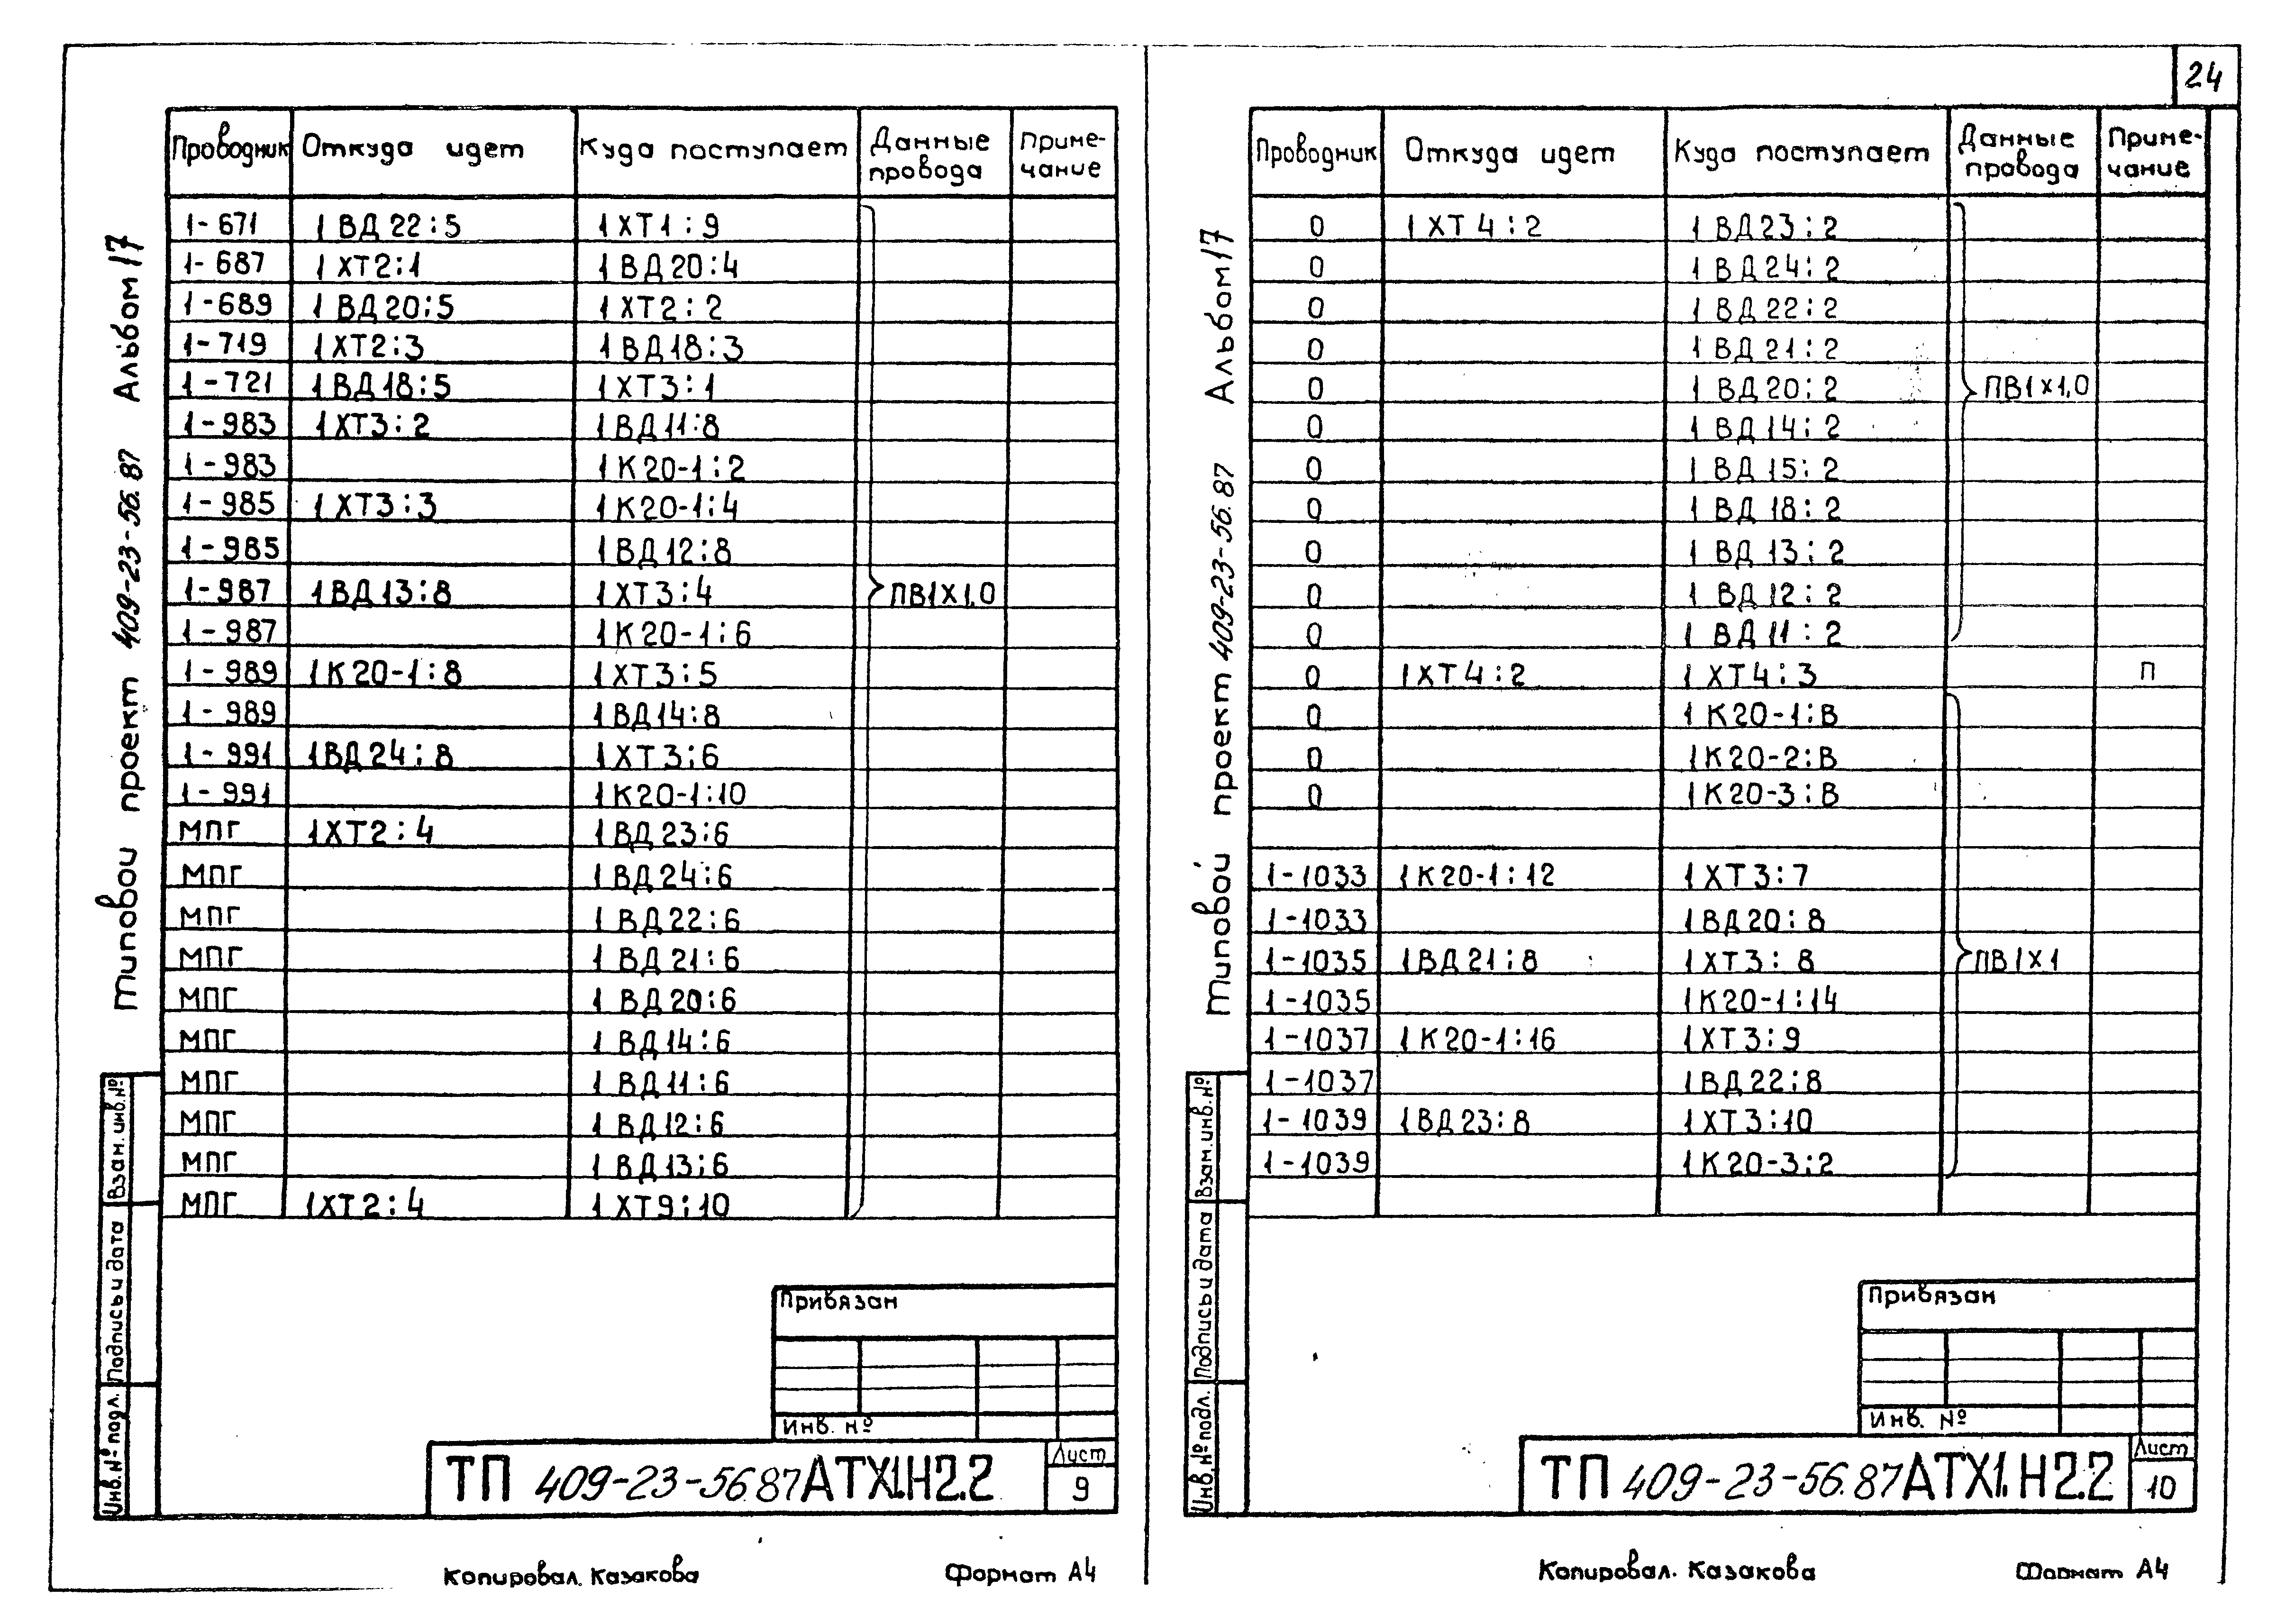 24
Типовой проект 409-23-56.87 Альбом 17
Проводник Откуда идет Куда поступает Данные провода Приме-чание
1-671 1ВД22:5 1ХТ1:9
1-687 1ХТ2:1 1ВД20:4
1-689 1ВД20:5 1ХТ2:2
1-719 1ХТ2:3 1ВД18:3
1-721 1ВД18:5 1ХТ3:1
1-983 1ХТ3:2 1ВД11:8
1-983 1К20-1:2
1-985 1ХТ3:3 1К20-1:4
1-985 1ВД12:8
1-987 1ВД13:8 1ХТ3:4 ПВ1х1,0
1-987 1К20-1:6
1-989 1К20-1:8 1ХТ3:5
1-989 1ВД14:8
1-991 1ВД24:8 1ХТ3:6
1-991 1К20-1:10
МПГ 1ХТ2:4 1ВД23:6
МПГ 1ВД24:6
МПГ 1ВД22:6
МПГ 1ВД21:6
МПГ 1ВД20:6
МПГ 1ВД14:6
МПГ 1ВД11:6
МПГ 1ВД12:6
МПГ 1ВД13:6
МПГ 1ХТ2:4 1ХТ9:10
Взам. инв. №
Подпись и дата
Инв. № подл.
Привязан
Инв. №
ТП 409-23-56.87 АТХ1.Н2.2
Лист
9
Копировал. Казакова Формат А4
Типовой проект 409-23-56.87 Альбом 17
Проводник Откуда идет Куда поступает Данные провода Приме-чание
0 1ХТ4:2 1ВД23:2
0 1ВД24:2
0 1ВД22:2
0 1ВД21:2
0 1ВД20:2 ПВ1х1,0
0 1ВД14:2
0 1ВД15:2
0 1ВД18:2
0 1ВД13:2
0 1ВД12:2
0 1ВД11:2
0 1ХТ4:2 1ХТ4:3 П
0 1К20-1:В
0 1К20-2:В
0 1К20-3:В
1-1033 1К20-1:12 1ХТ3:7
1-1033 1ВД20:8
1-1035 1ВД21:8 1ХТ3:8 ПВ1х1
1-1035 1К20-1:14
1-1037 1К20-1:16 1ХТ3:9
1-1037 1ВД22:8
1-1039 1ВД23:8 1ХТ3:10
1-1039 1К20-3:2
Взам. инв. №
Подпись и дата
Инв. № подл.
Привязан
Инв. №
ТП 409-23-56.87 АТХ1.Н2.2
Лист
10
Копировал. Казакова Формат А4